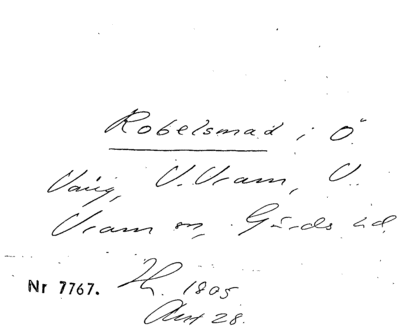 Robelsmad i Ö.
Väng, V. Vram, V.
Vram sn, Gärds hd.
Nr 7767. Th. 1805
Akt 28.